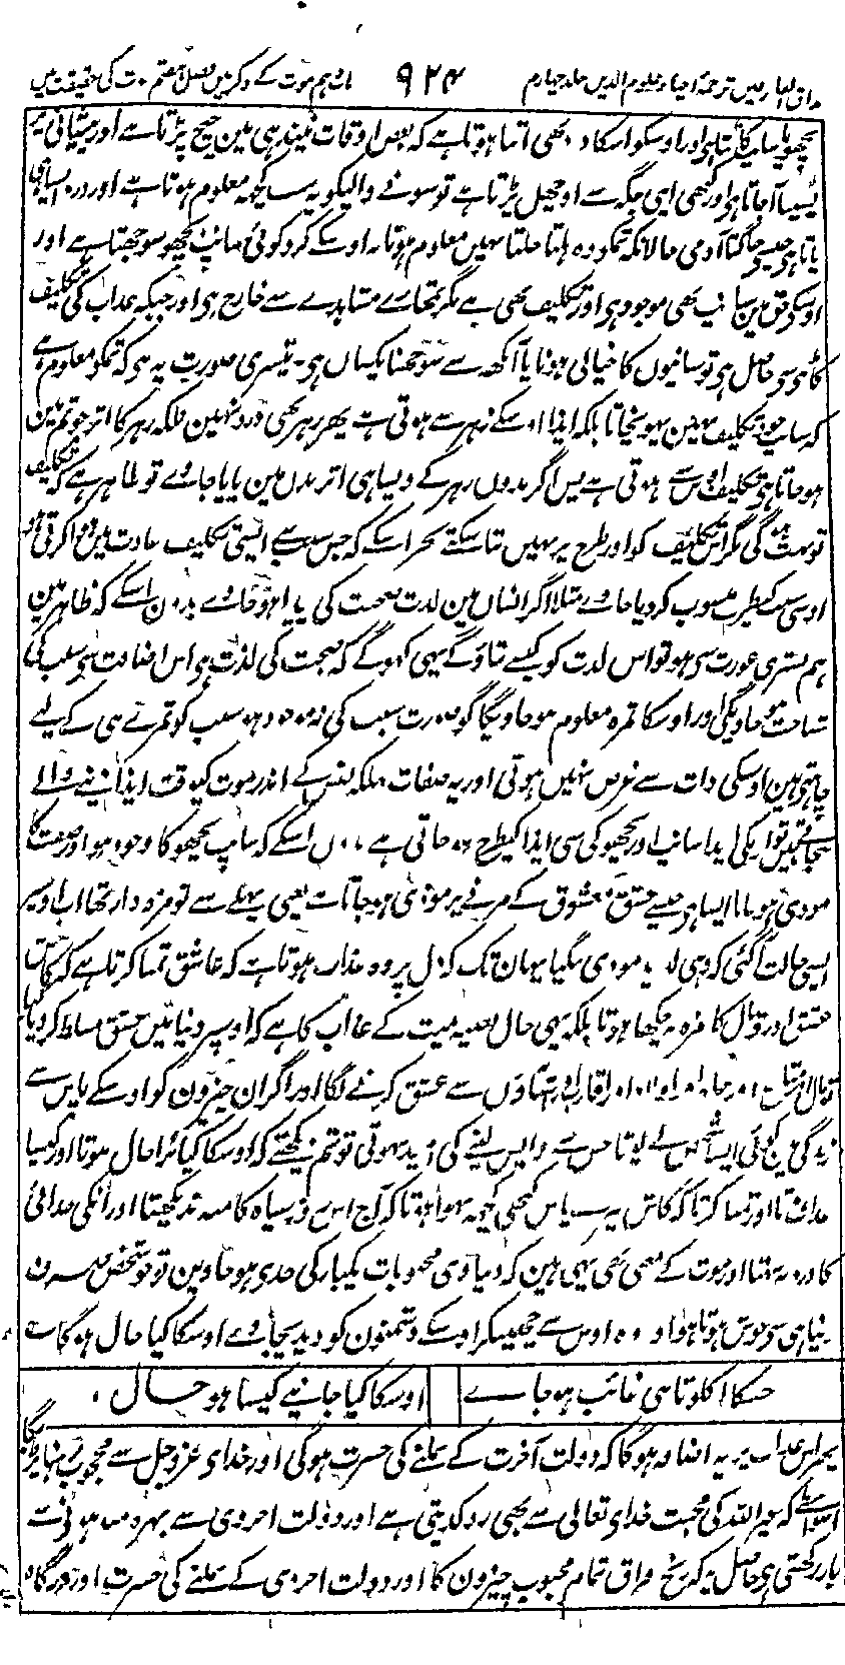 مذاق العارفین ترجمۂ احیاء علوم الدین جلد چہارم ۹۲۴ باب دہم موت کے ذکر میں فصل ہفتم موت کی حقیقت میں
بچھو یا سانپ کاٹتا ہی اور اوسکو اسکا درد بھی اتنا ہوتا ہے کہ بعض اوقات نیند ہی مین چیخ پڑتا ہے اور پیشانی پر
پسینا آجاتا ہی اور کبھی اپنی جگہ سے اوچھل پڑتا ہے تو سونے والیکو یہ سب کچھ معلوم ہوتا ہے اور درد ایسا ہی
پاتا ہی جیسے جاگتا آدمی حالانکہ تمکو وہ ہلتا چلتا نہیں معلوم ہوتا نہ اوسکے گرد کوئی سانپ بچھو سوجھتا ہے اور
اوسکے حق مین سانپ بھی موجود ہی اور تکلیف بھی ہے مگر تمھارے مشاہدے سے خارج ہی اور جبکہ عذاب کی تکلیف
کاٹنے سے حاصل ہی تو سانپوں کا خیالی ہونا یا آنکھ سے سوجھنا یکساں ہی۔ تیسری صورت یہ ہی کہ تمکو معلوم ہے
کہ سانپ خود تکلیف نہین پہونچاتا بلکہ ایذا اوسکے زہر سے ہوتی ہے پھر زہر بھی درد نہین بلکہ زہر کا اثر جو تم مین
ہو جاتا ہی تکلیف اوس سے ہوتی ہے پس اگر بدوں زہر کے ویسا ہی اثر بدن مین پایا جاوے تو ظاہر ہے کہ تکلیف
تو بہت ہوگی مگر اس تکلیف کو اور طرح پر نہیں بتا سکتے بجز اسکے کہ جس سبب سے ایسی تکلیف عادت مین ہوا کرتی ہو
اوسی سبب کیطرف منسوب کر دیا جاوے مثلا اگر انسان مین لذت صحبت کی پیدا ہو جاوے بدون اسکے کہ ظاہر مین
ہم بستری عورت سے ہو تو اس لذت کو کیسے بتاؤگے یہی کہوگے کہ صحبت کی لذت ہی اس اضافت سے سبب کی
شناخت ہو جاویگی اور اوسکا ثمرہ معلوم ہو جاویگا گو صورت سبب کی نہ موجود ہو سبب کو ثمرے ہی کے لیے
چاہتے ہین اوسکی ذات سے غرض نہیں ہوتی اور یہ صفات مہلکہ نفس کے اندر موت کیوقت ایذا دینے والے
بنجاتے ہین تو انکی ایذا سانپ اور بچھو کی سی ایذا کیطرح ہو جاتی ہے بدوں اسکے کہ سانپ بچھو کا وجود ہو اور صفت کا
موذی ہو جانا ایسا ہی جیسے عشق معشوق کے مرنے پر موذی ہو جاتا ہے یعنی پہلے سے تو مزہ دار تھا اب اوسپر
ایسی حالت آگئی کہ وہی لذیذ موذی بنگیا یہان تک کہ دل پر وہ عذاب ہوتا ہے کہ عاشق تمنا کرتا ہے کہ کاش
عشق اور وصال کا مزہ نہ چکھا ہوتا بلکہ یہی حال بعینہ میت کے عذاب کا ہے کہ اوسپر دنیا مین عشق مسلط کر دیا گیا
تو مال اور متاع اور جاہ اور اولاد اور اقارب اور آشناؤں سے عشق کرنے لگا اور اگر ان چیزون کو اوسکے پاس سے
زندگی مین کوئی ایسا شخص لے لیتا جس سے واپس لینے کی امید نہوتی تو تم دیکھتے کہ اوسکا کیا برا حال ہوتا اور کیسا
عذاب پاتا اور تمنا کرتا کہ کاش میرے پاس کبھی کچھ نہ ہوا ہوتا کہ آج اس روز سیاہ کا منہ نہ دیکھتا اور انکی جدائی
کا درد نہ سہتا اور موت کے معنی بھی یہی ہین کہ دنیاوی محبوبات یکبارگی جدی ہو جاوین تو جو شخص صرف
دنیا ہی سے خوش ہوتا ہو اور وہ اوس سے چھینکر اوسکے دشمنون کو دیدیجاوے اوسکا کیا حال ہوگا ؎
جسکا اکلوتا ہی غائب ہو جاے اوسکا کیا جانیے کیسا ہو حال
پھر اس عذاب پر یہ اضافہ ہوگا کہ دولت آخرت کے نہ ملنے کی حسرت ہوگی اور خدای عزوجل سے محجوب رہنا پڑیگا
اسلیے کہ غیر اللہ کی محبت خدای تعالی سے بھی روکدیتی ہے اور دولت اخروی سے بہرہ مند ہونے سے
باز رکھتی ہی حاصل یہ کہ رنج فراق تمام محبوب چیزون کا اور دولت اخروی کے نہ ملنے کی حسرت اور درگاہ